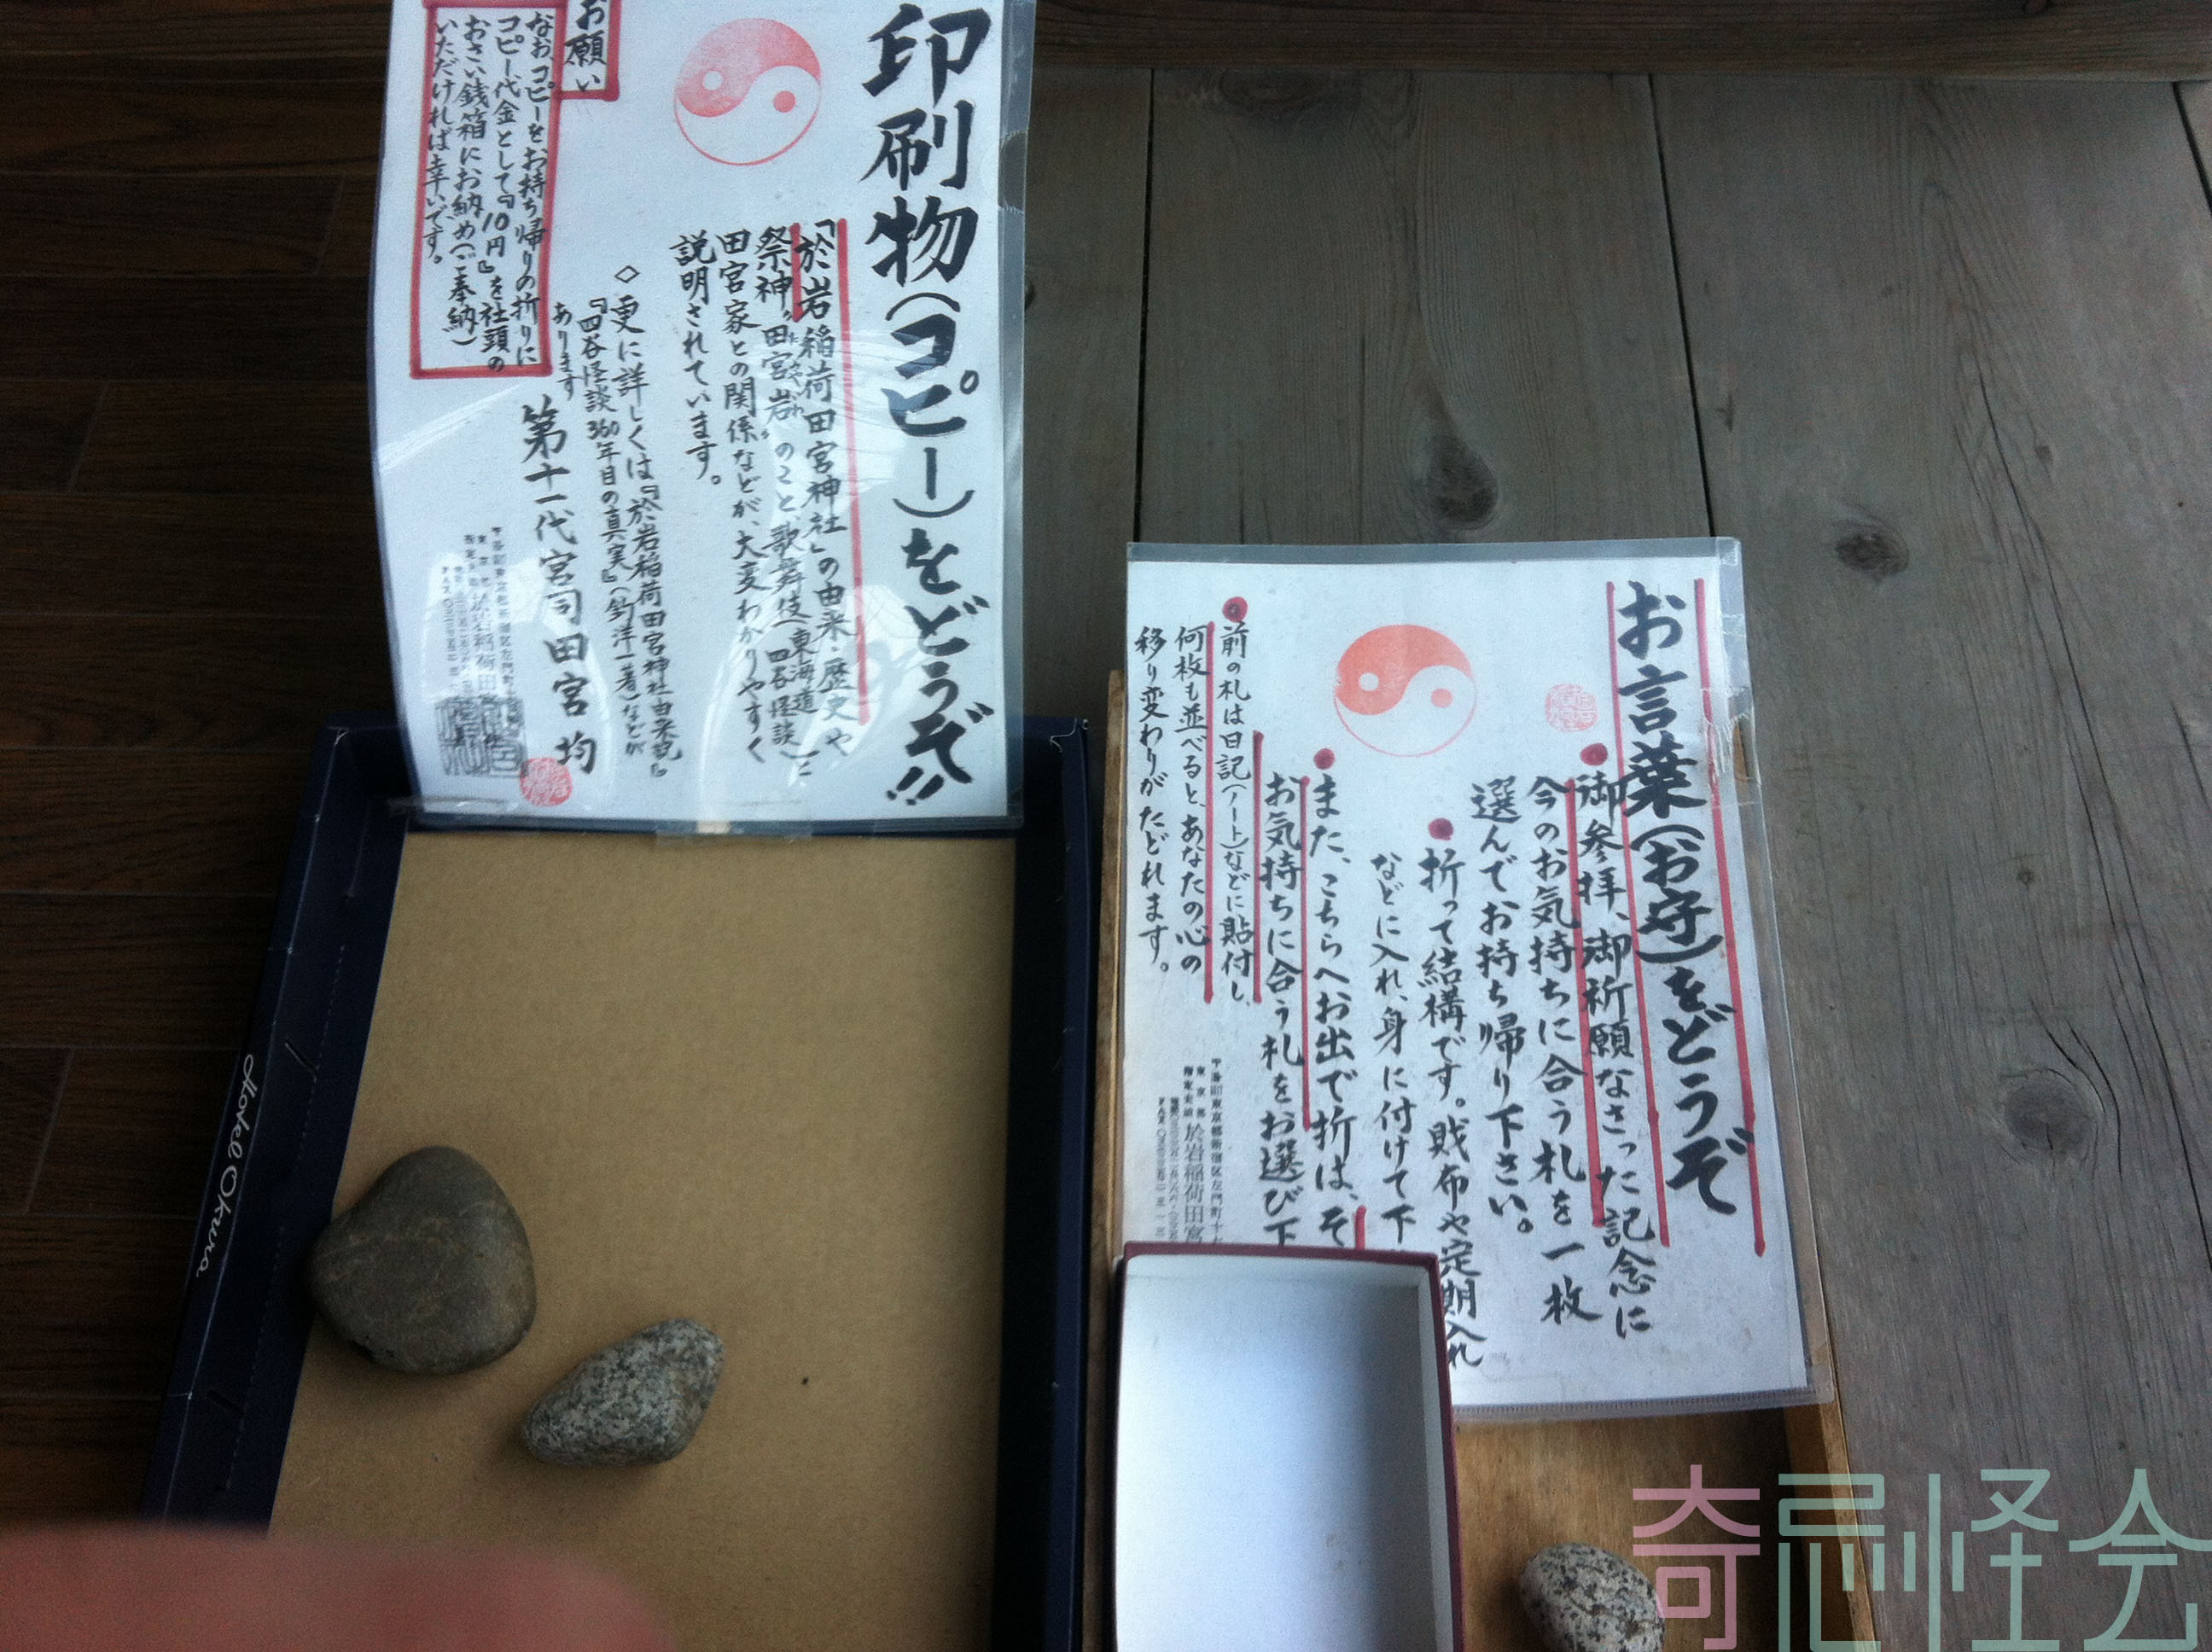 印刷物(コピー)をどうぞ!!
『於岩稲荷田宮神社』の由来・歴史や
祭神〝田宮岩〟のこと、歌舞伎(東海道四谷怪談)と
たみやいわ
田宮家との関係などが、大変わかりやすく
説明されています。
◇更に詳しくは『於岩稲荷田宮神社由来記』
『四谷怪談360年目の真実』(釣洋一著)などが
あります
第十一代宮司田宮 均
お願い
なお、コピーをお持ち帰りの折りに
コピー代金として『10円』を社頭の
おさい銭箱にお納め(ご奉納)
いただければ幸いです。
於岩稲荷田
お言葉(お守)をどうぞ
御参拝、御祈願なさった記念に
今のお気持ちに合う札を一枚
選んでお持ち帰り下さい。
折って結構です。財布や定期入れ
などに入れ、身に付けて下
また、こちらへお出で折は、そ
お気持ちに合う札をお選び下
前の札は日記(ノート)などに貼付し、
何枚も並べると、あなたの心の
移り変わりがたどれます。
東京都新宿区左門町十七
於岩稲荷田宮
Hotel Okura
奇忌怪会